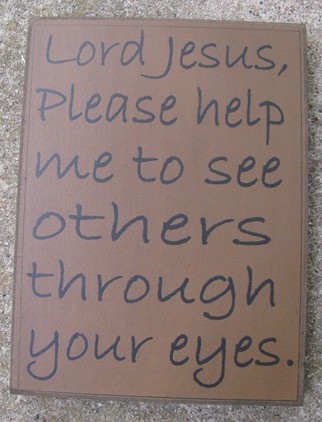 Lord Jesus,
Please help
me to see
others
through
your eyes.